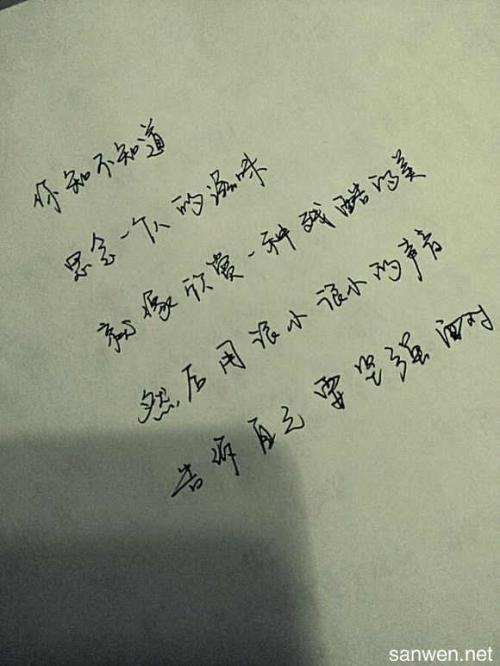 你知不知道
思念一个人的滋味
就像欣赏一种残酷的美
然后用很小很小的声音
告诉自己要坚强面对
sanwen.net